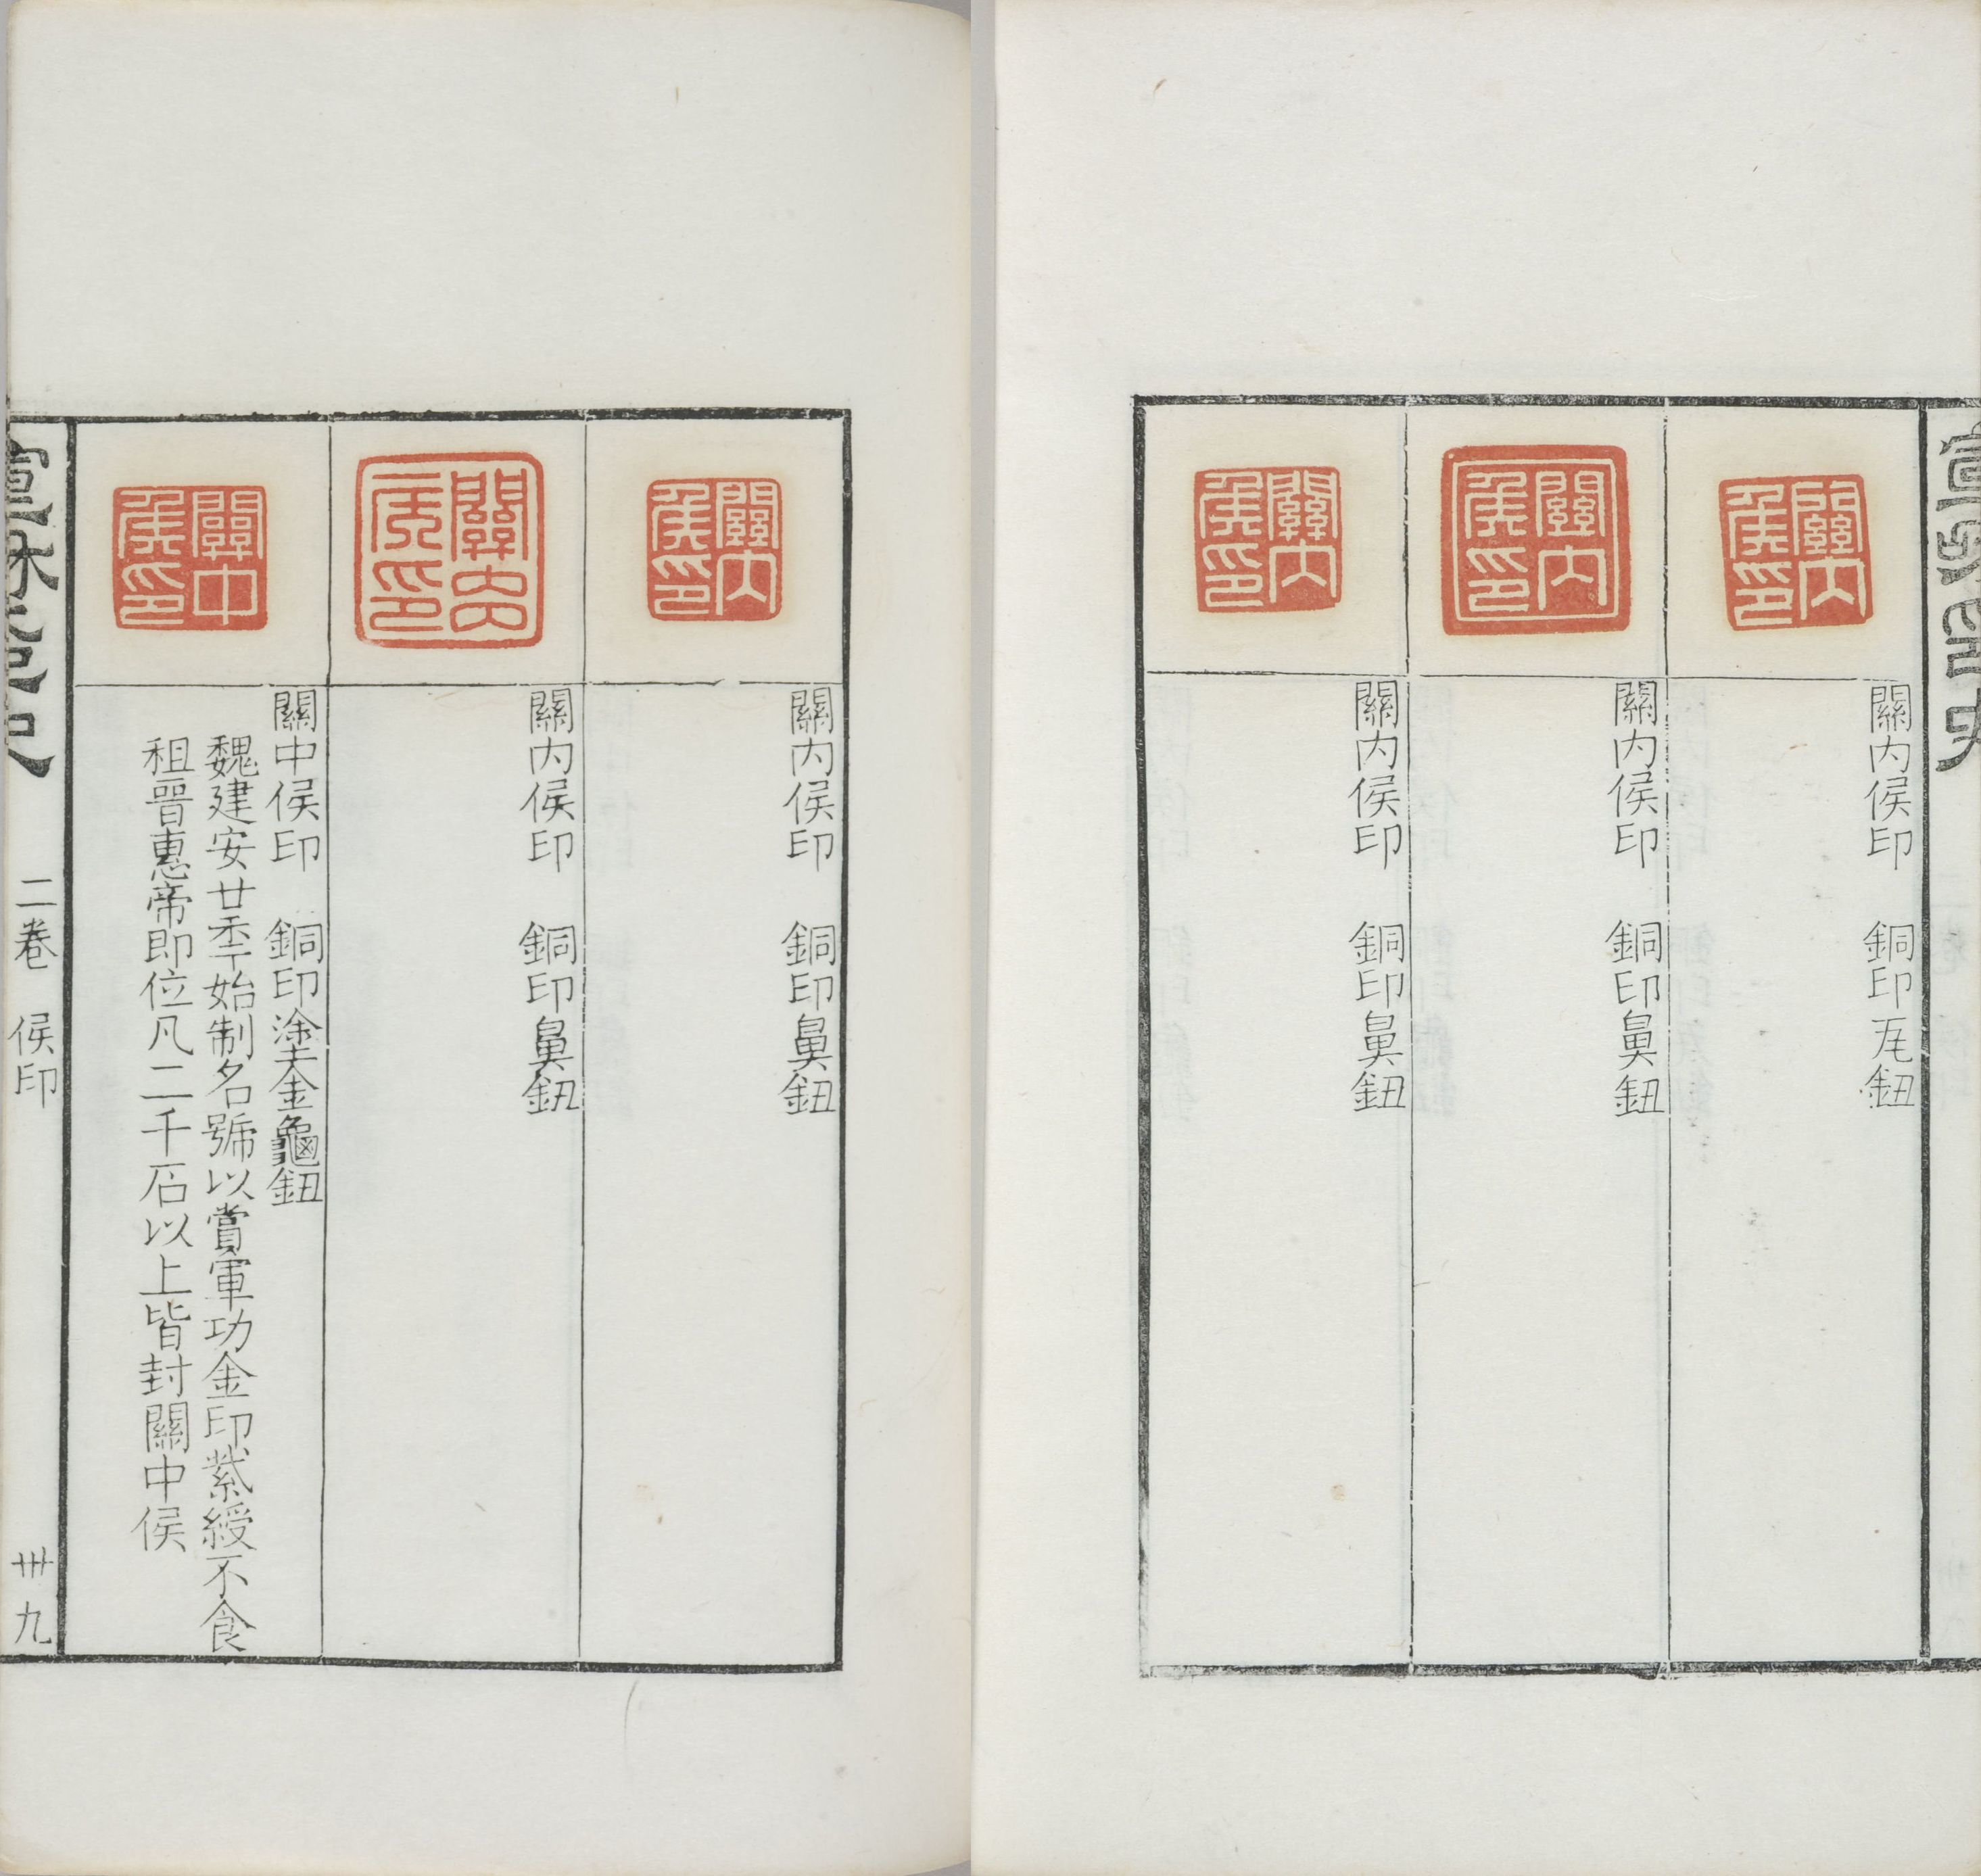 關内侯印
關内侯印　銅印瓦鈕
關内侯印
關内侯印　銅印鼻鈕
關内侯印
關内侯印　銅印鼻鈕
關内侯印
關内侯印　銅印鼻鈕
關内侯印
關内侯印　銅印鼻鈕
關中侯印
關中侯印　銅印塗金龜鈕
魏建安廿秊始制名號以賞軍功金印紫綬不食
租晉惠帝即位凡二千石以上皆封關中侯
二卷　侯印　卌九